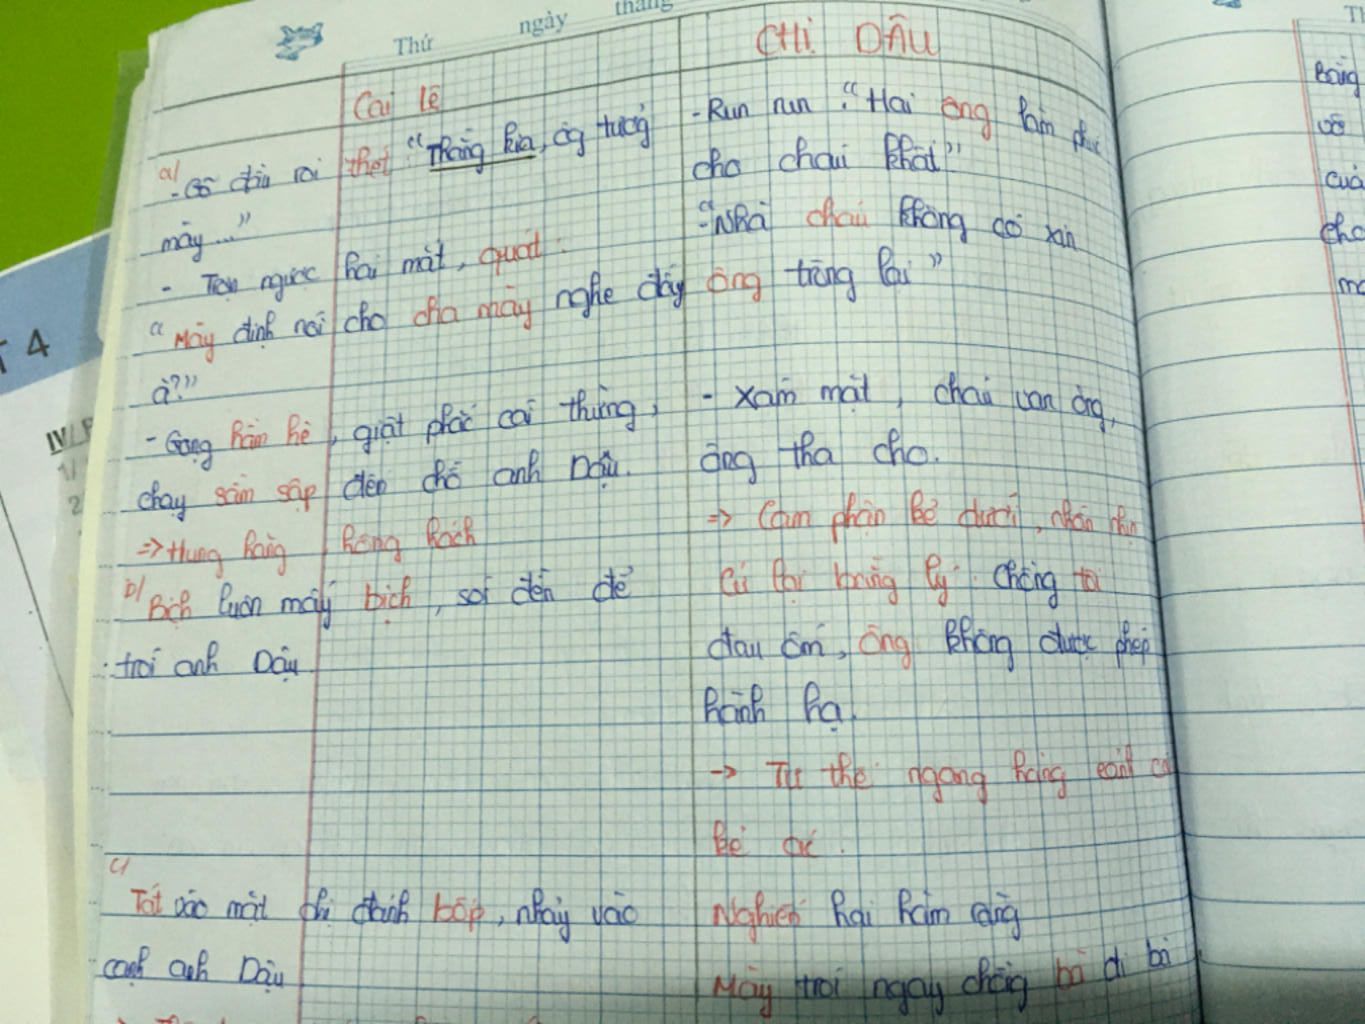 Thứ ngày tháng
Cai lệ
a/
- Gõ đầu roi thét: "Thằng kia, ôg tưởng
mày..."
- Trợn ngược hai mắt, quát:
"Mày định nói cho cha mày nghe đấy
à?"
- Giọng hầm hè, giật phắc cái thừng,
chạy sầm sập đến chỗ anh Dậu.
=> Hung hăng, hống hách
b/ Bịch luôn mấy bịch, sợi đến để
trói anh Dậu
c/
Tát vào mặt chị đánh bốp, nhảy vào
cạnh anh Dậu
CHỊ DẬU
- Run run: "Hai ông làm phúc
cho cháu khất"
- "Nhà cháu không có xin
ông trông lại"
- Xám mặt, cháu van ông,
ông tha cho.
=> Cam phận kẻ dưới, nhẫn nhịn
Cự lại bằng lý: Chồng tôi
đau ốm, ông không được phép
hành hạ.
-> Tư thế ngang hàng
kẻ ác.
Nghiến hai hàm răng
Mày trói ngay chồng bà đi bà
IV/
1/
2
T 4
Th
của
cho